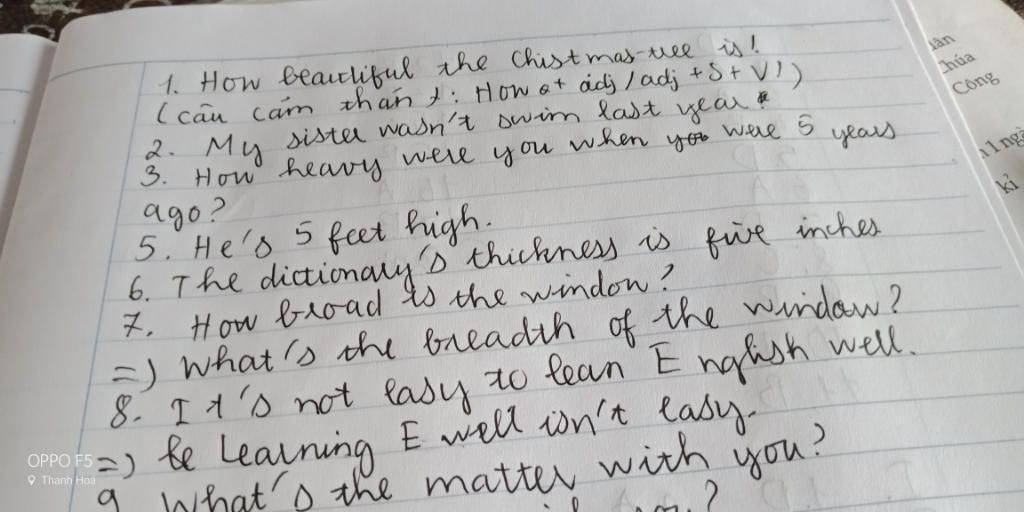 1. How beautiful the Chistmas-tree is!
(câu cảm thán +: How + adj / adj + S + V!)
2. My sister wasn't swim last year.
3. How heavy were you when were 5 years
ago?
5. He's 5 feet high.
6. The dictionary's thickness is five inches
7. How broad is the window?
=) What's the breadth of the window?
8. It's not easy to lean English well.
=) Learning E well isn't easy.
9 What's the matter with you?
OPPO F5
Thanh Hoá
lân
húa
Công
kỉ